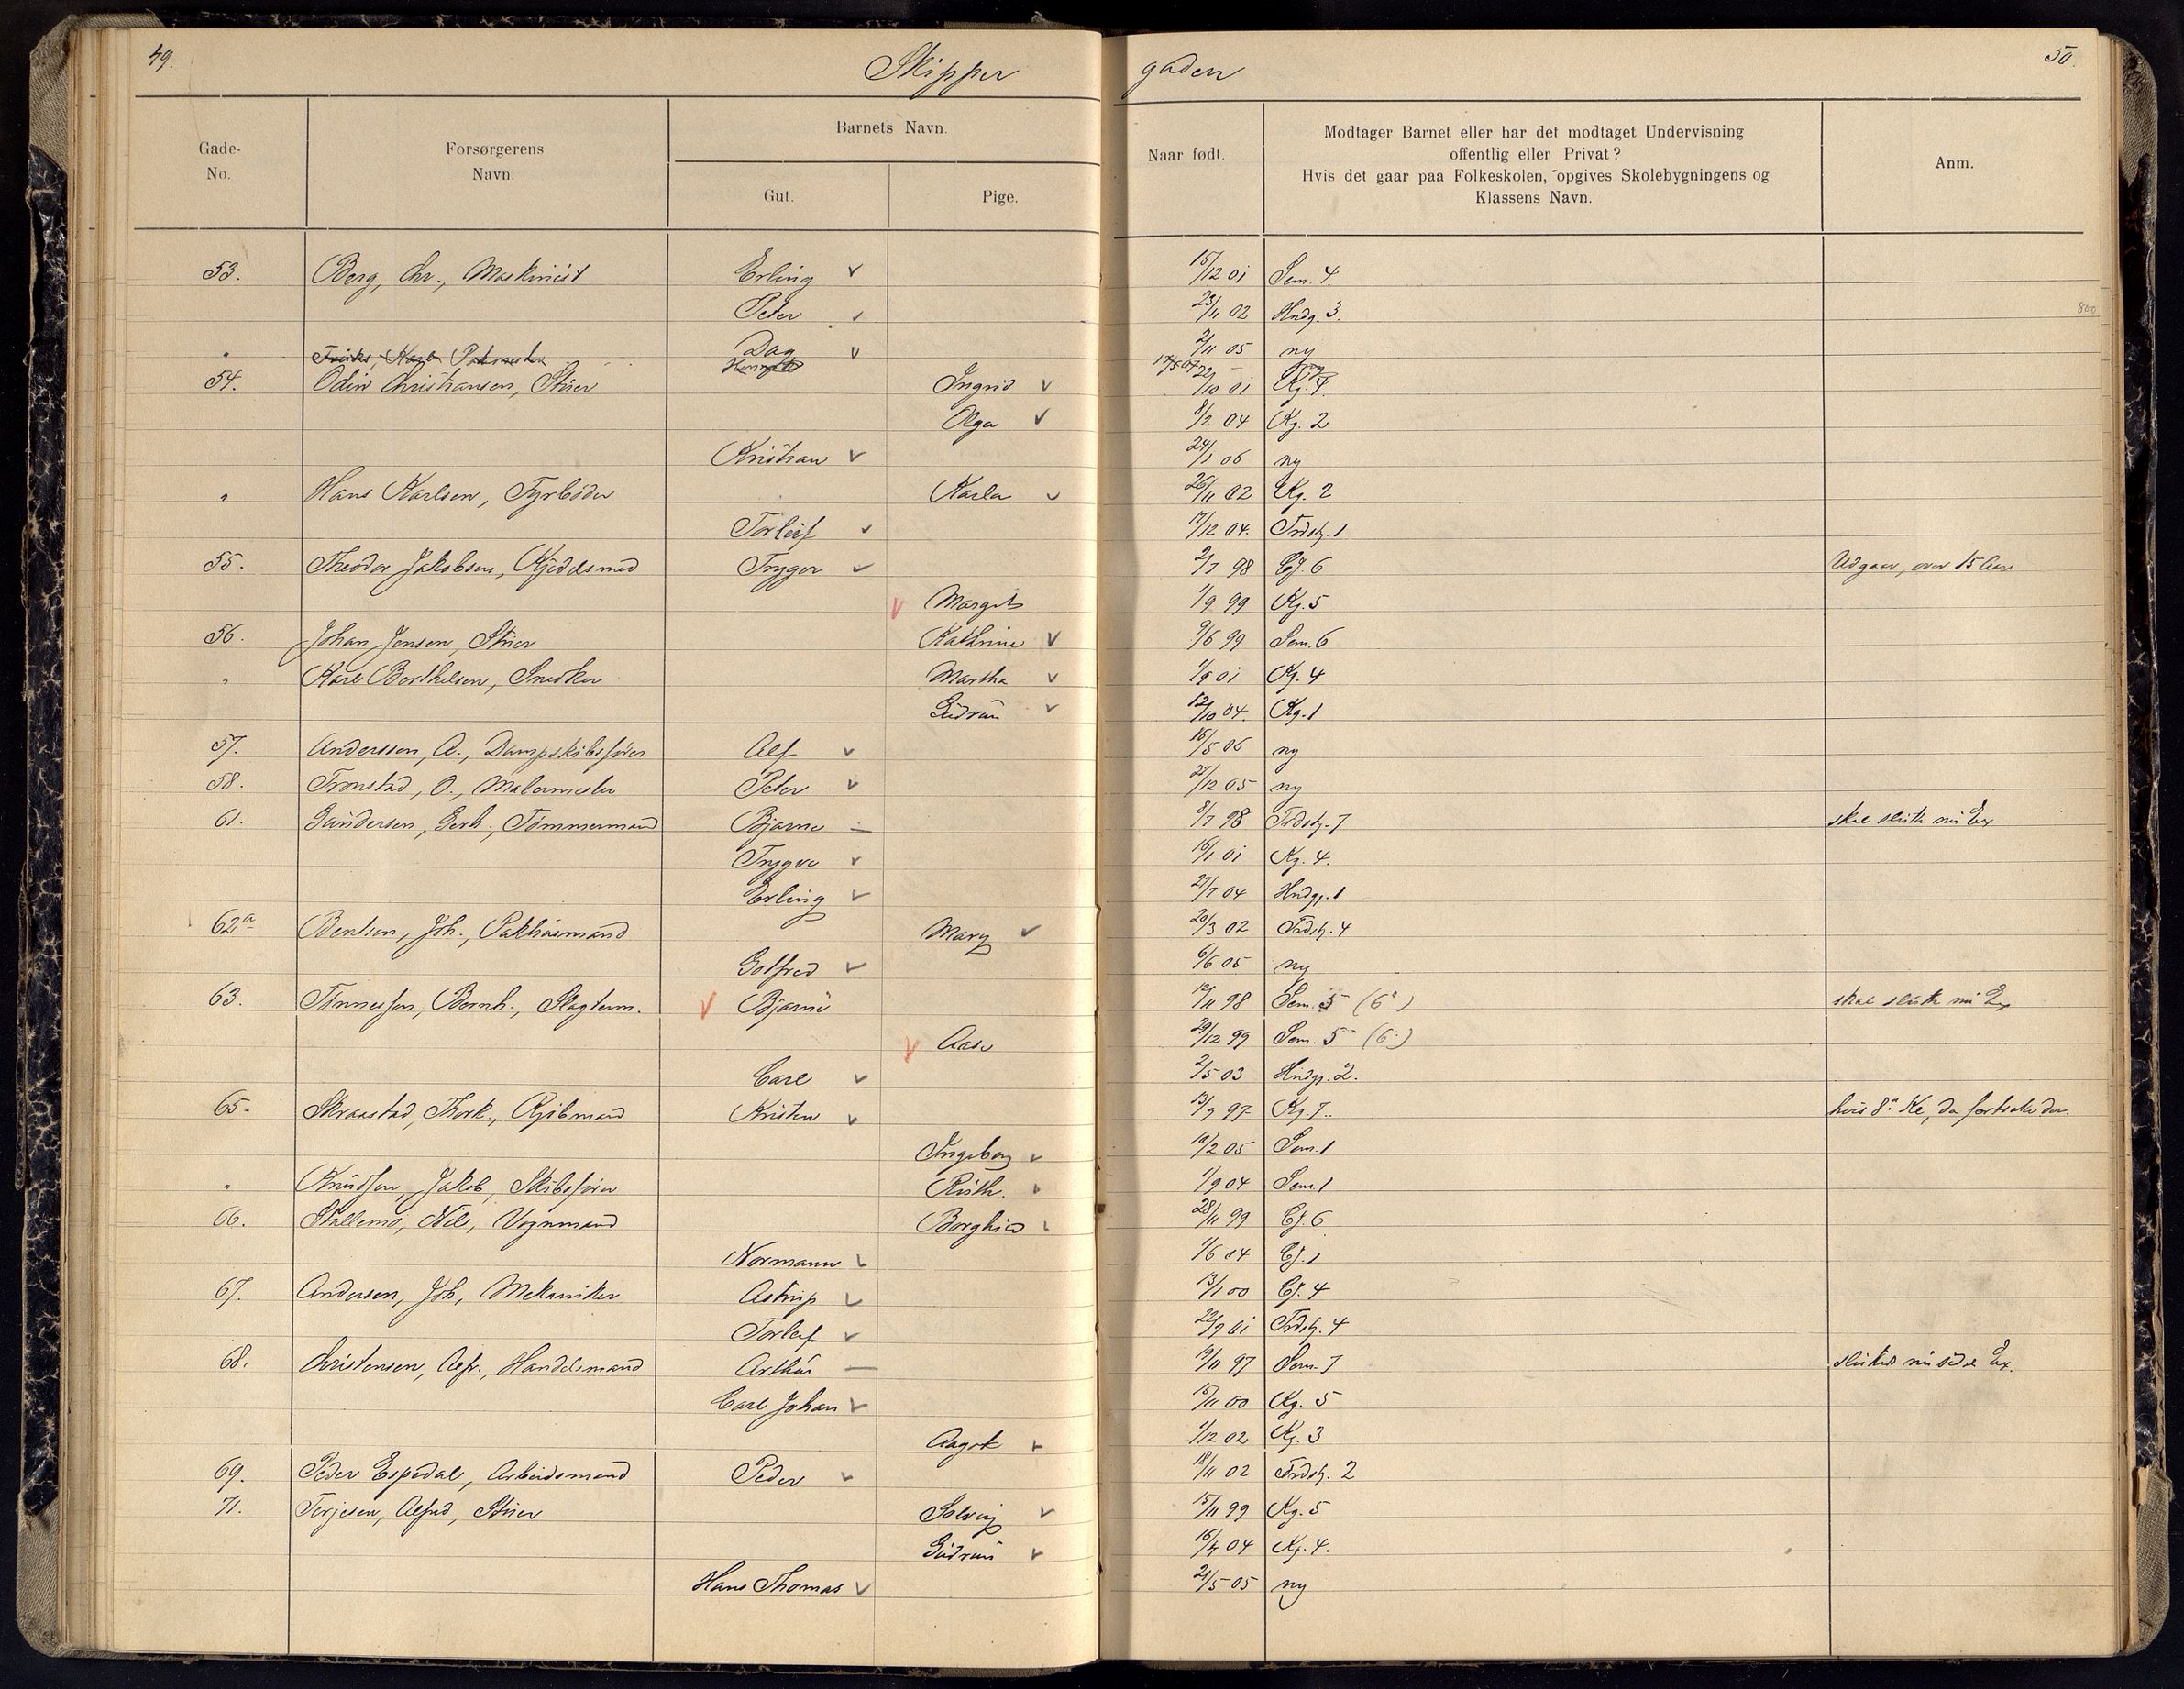 49.
Skipper
gaden
50.
Gade-
No.
Forsørgerens
Navn.
Barnets Navn.
Gut.
Pige.
Naar født.
Modtager Barnet eller har det modtaget Undervisning
offentlig eller Privat?
Hvis det gaar paa Folkeskolen, opgives Skolebygningens og
Klassens Navn.
Anm.
53. Berg, Chr., Maskinist Erling v 15/12 01 Sem. 4.
Peter v 23/11 02 Hndg. 3. 800
" Karl Dag v 2/11 05 ny
54. Odin Christiansen, Stuer Ingrid v 22/10 01 Kg. 4.
Olga v 8/2 04 Kg. 2
Kristian v 24/1 06 ny
" Hans Karlsen, Fyrbøder Karla v 26/11 02 Kg. 2
Torleif v 17/12 04. Trdstg. 1
55. Theodor Jakobsen, Kjedelsmed Trygve v 2/7 98 Cf. 6 Udgaar, over 15 Aar
v Margit 1/9 99 Kg. 5
56. Johan Jensen, Stuer Kathrine v 9/6 99 Sem. 6
" Karl Berthelsen, Snedker Martha v 1/9 01 Kg. 4
Gudrun v 12/10 04. Kg. 1
57. Anderssen, A., Dampskibsfører Alf v 16/5 06 ny
58. Tronstad, O., Malermester Peter v 28/12 05 ny
61. Gundersen, Gerh., Tømmermand Bjarne — 8/7 98 Trdstg. 7 skal slutte nu Ex
Trygve v 16/1 01 Kg. 4.
Erling v 27/7 04 Hndg. 1
62a Bentsen, Joh., Pakhusmand Mary v 20/3 02 Trdstg. 4
Gotfred v 6/6 05 ny
63. Tønnesen, Bernh., Slagterm. v Bjarne 12/11 98 Sem. 5 (6) skal slutte nu Ex
v Aase 29/12 99 Sem. 5 (6)
Carl v 2/5 03 Hndg. 2.
65. Skraastad, Thork., Kjøbmand Kristen v 13/9 97 Kg. 7. hvis 8. Kl, da fortsætter den.
Ingeborg v 10/2 05 Sem. 1
" Knudsen, Jakob, Skibsfører Ruth. v 1/9 04 Sem. 1
66. Stallemo, Nils, Vognmand Borghild v 28/11 99 Cf. 6
Normann v 1/6 04 Cf. 1
67. Andersen, Joh, Mekaniker Astrup v 13/1 00 Cf. 4
Torleif v 22/9 01 Trdstg. 4
68. Christensen, Alfr., Handelsmand Arthur — 19/11 97 Sem. 7 slutter nu sidst Ex.
Carl Johan v 15/11 00 Kg. 5
Aagot v 1/12 02 Kg. 3
69. Peder Espedal, Arbeidsmand Peder v 18/11 02 Trdstg. 2
71. Terjesen, Alfred, Stuer Solveig v 15/11 99 Kg. 5
Gudrun v 16/4 04 Kg. 4.
Hans Thomas v 21/5 05 ny